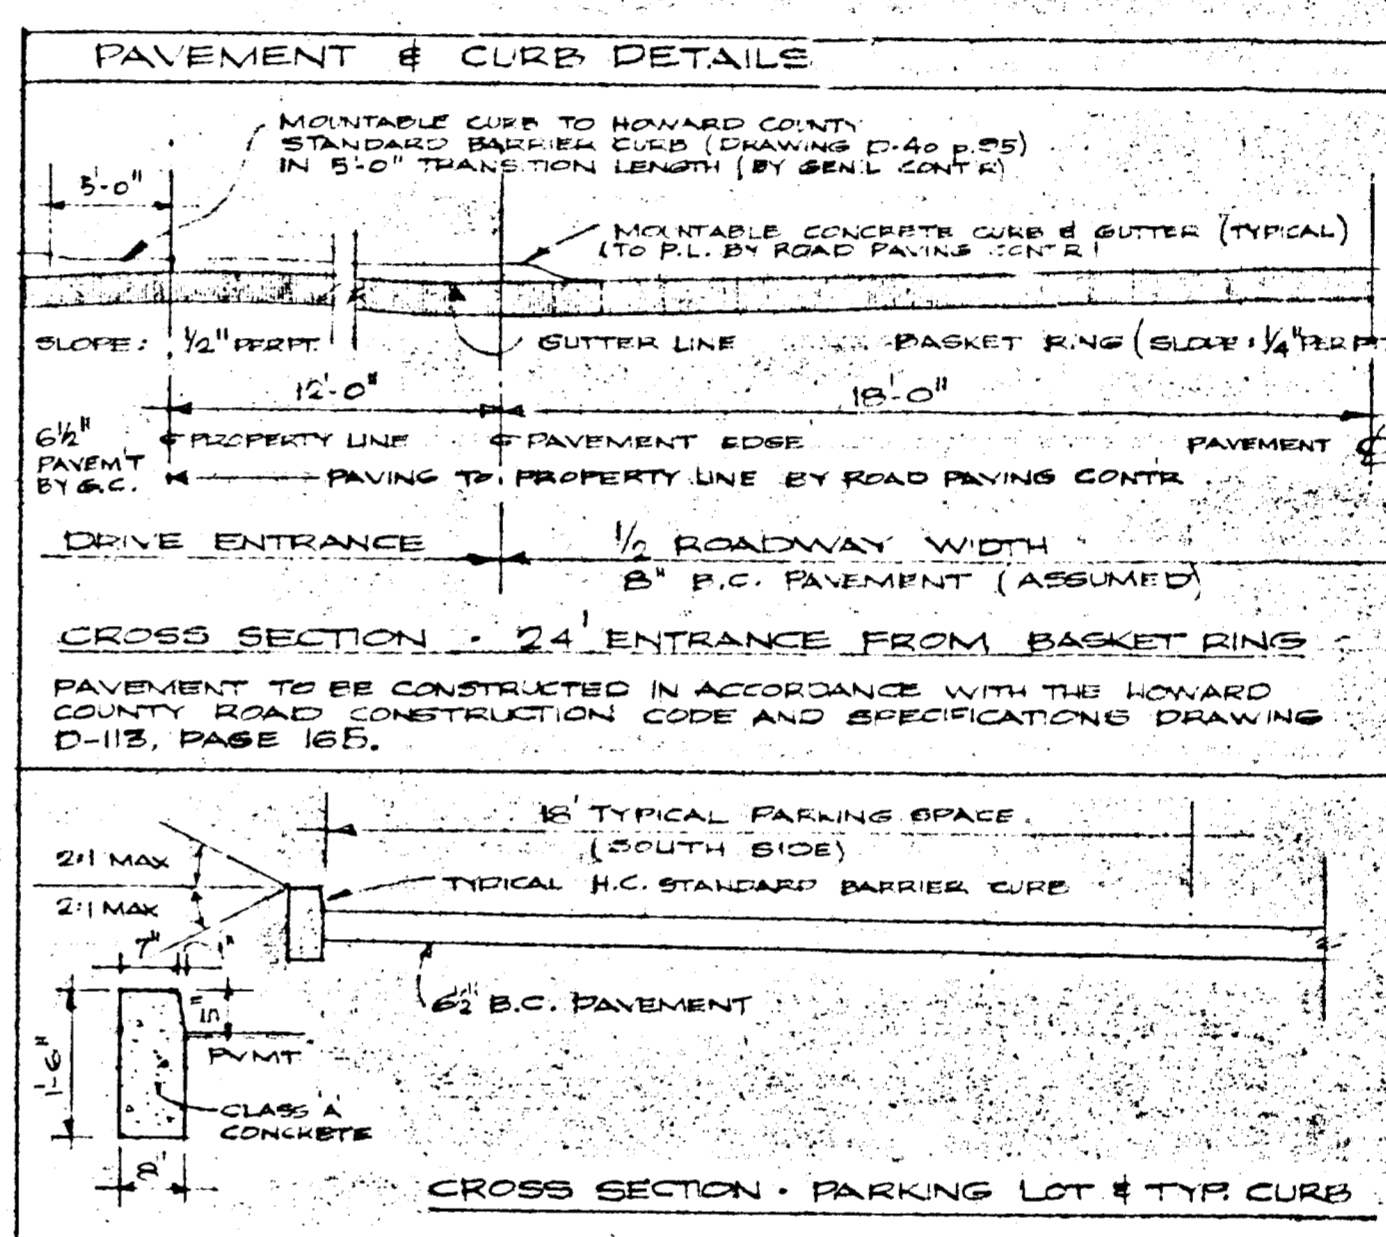 PAVEMENT & CURB DETAILS
MOUNTABLE CURB TO HOWARD COUNTY
STANDARD BARRIER CURB (DRAWING D-40 p.95)
IN 5'-0" TRANSITION LENGTH (BY GEN'L CONT'R)
5'-0"
MOUNTABLE CONCRETE CURB & GUTTER (TYPICAL)
(TO P.L. BY ROAD PAVING CONT'R)
SLOPE: 1/2" PER FT.
GUTTER LINE
BASKET RING (SLOPE: 1/4" PER FT
12'-0"
18'-0"
6 1/2"
PAVEM'T
BY G.C.
PROPERTY LINE
PAVEMENT EDGE
PAVEMENT ℄
PAVING TO PROPERTY LINE BY ROAD PAVING CONTR.
DRIVE ENTRANCE
1/2 ROADWAY WIDTH
8" B.C. PAVEMENT (ASSUMED)
CROSS SECTION · 24' ENTRANCE FROM BASKET RING
PAVEMENT TO BE CONSTRUCTED IN ACCORDANCE WITH THE HOWARD
COUNTY ROAD CONSTRUCTION CODE AND SPECIFICATIONS DRAWING
D-113, PAGE 165.
18' TYPICAL PARKING SPACE
(SOUTH SIDE)
2:1 MAX
TYPICAL H.C. STANDARD BARRIER CURB
2:1 MAX
7"
1"
6 1/2" B.C. PAVEMENT
PVMT.
1'-6"
CLASS 'A'
CONCRETE
8"
CROSS SECTION · PARKING LOT & TYP. CURB